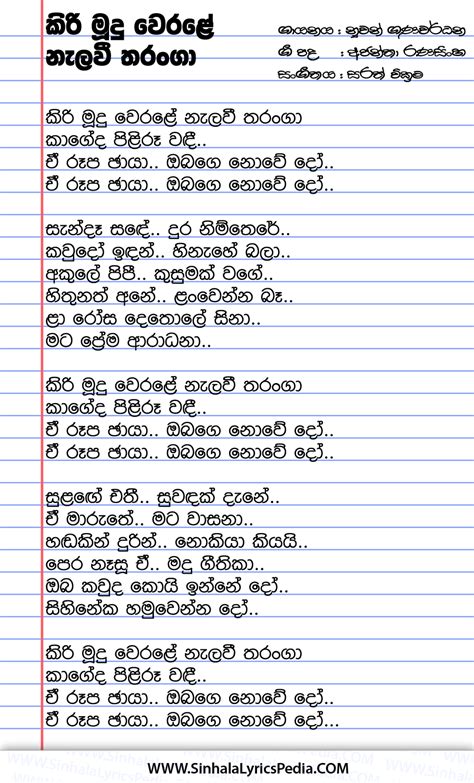 කිරි මූදු වෙරළේ
නැලවී තරංගා
ගායනය : නුවන් ගුණවර්ධන
ගී පද : අජන්තා රණසිංක
සංගීතය : සරත් වික්‍රම
කිරි මූදු වෙරළේ නැලවී තරංගා
කාගේද පිළිරූ වඳී..
ඒ රූප ඡායා.. ඔබගෙ නොවේ දෝ..
ඒ රූප ඡායා.. ඔබගෙ නොවේ දෝ..
සැන්දෑ සඳේ.. දුර නිම්තෙරේ..
කවුදෝ ඉඳන්.. හිනැහේ බලා..
අකුලේ පිපී.. කුසුමක් වගේ..
හිතුනත් අනේ.. ළංවෙන්න බෑ..
ළා රෝස දෙතොලේ සිනා..
මට ප්‍රේම ආරාධනා..
කිරි මූදු වෙරළේ නැලවී තරංගා
කාගේද පිළිරූ වඳී..
ඒ රූප ඡායා.. ඔබගෙ නොවේ දෝ..
ඒ රූප ඡායා.. ඔබගෙ නොවේ දෝ..
සුළඟේ එතී.. සුවඳක් දැනේ..
ඒ මාරුතේ.. මට වාසනා..
හඬකින් දුරින්.. නොකියා කියයි..
පෙර නෑසූ ඒ.. මදු ගීතිකා..
ඔබ කවුද කොයි ඉන්නේ දෝ..
සිහිනේක හමුවෙන්න දෝ..
කිරි මූදු වෙරළේ නැලවී තරංගා
කාගේද පිළිරූ වඳී..
ඒ රූප ඡායා.. ඔබගෙ නොවේ දෝ..
ඒ රූප ඡායා.. ඔබගෙ නොවේ දෝ...
www.SinhalaLyricsPedia.COM